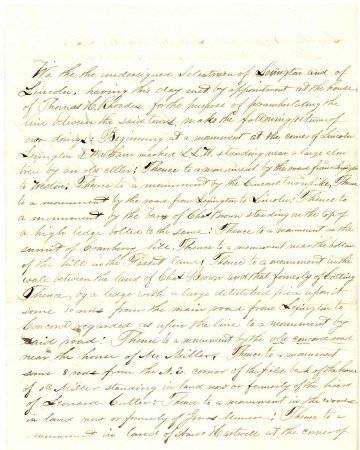 We the the undersigned Selectmen of Lexington and of
Lincoln, having this day met by appointment at the house
of Thomas H. Rhoades for the purpose of perambulating the
line between the said towns, make the following return of
our doings: Beginning at a monument at the corner of Lincoln
Lexington & Waltham marked L L W. standing near a large
by an old : Thence to a monument by the road from Lexington
to Weston; Thence to a monument by the Concord turnpike; Thence
to a monument by the road from Lexington to Lincoln; Thence to
a monument by the barn of Chas Brown standing on the top of
a high ledge bolted to the same; Thence to a monument in the
summit of Cranberry hill; Thence to a monument near the bottom
of the hill in the land; Thence to a monument in the
wall between the land of Chas Brown and that formerly of Cutting
Thence, by a ledge with a large detached piece upon it
some 10 rods from the main road from Lexington to
Concord regarded as upon the line to a monument by
said road; Thence to a monument by the old concord road
near the house of Mr Miller; Thence to a monument
some 8 rods from the N. E. corner of the field back of the house
of Mr Miller standing in land now or formerly of the heirs
of Leonard Cutler; Thence to a monument in the woods
in land now or formerly of Jonas Munroe; Thence to a
monument in land of Amos Hartwell at the corner of